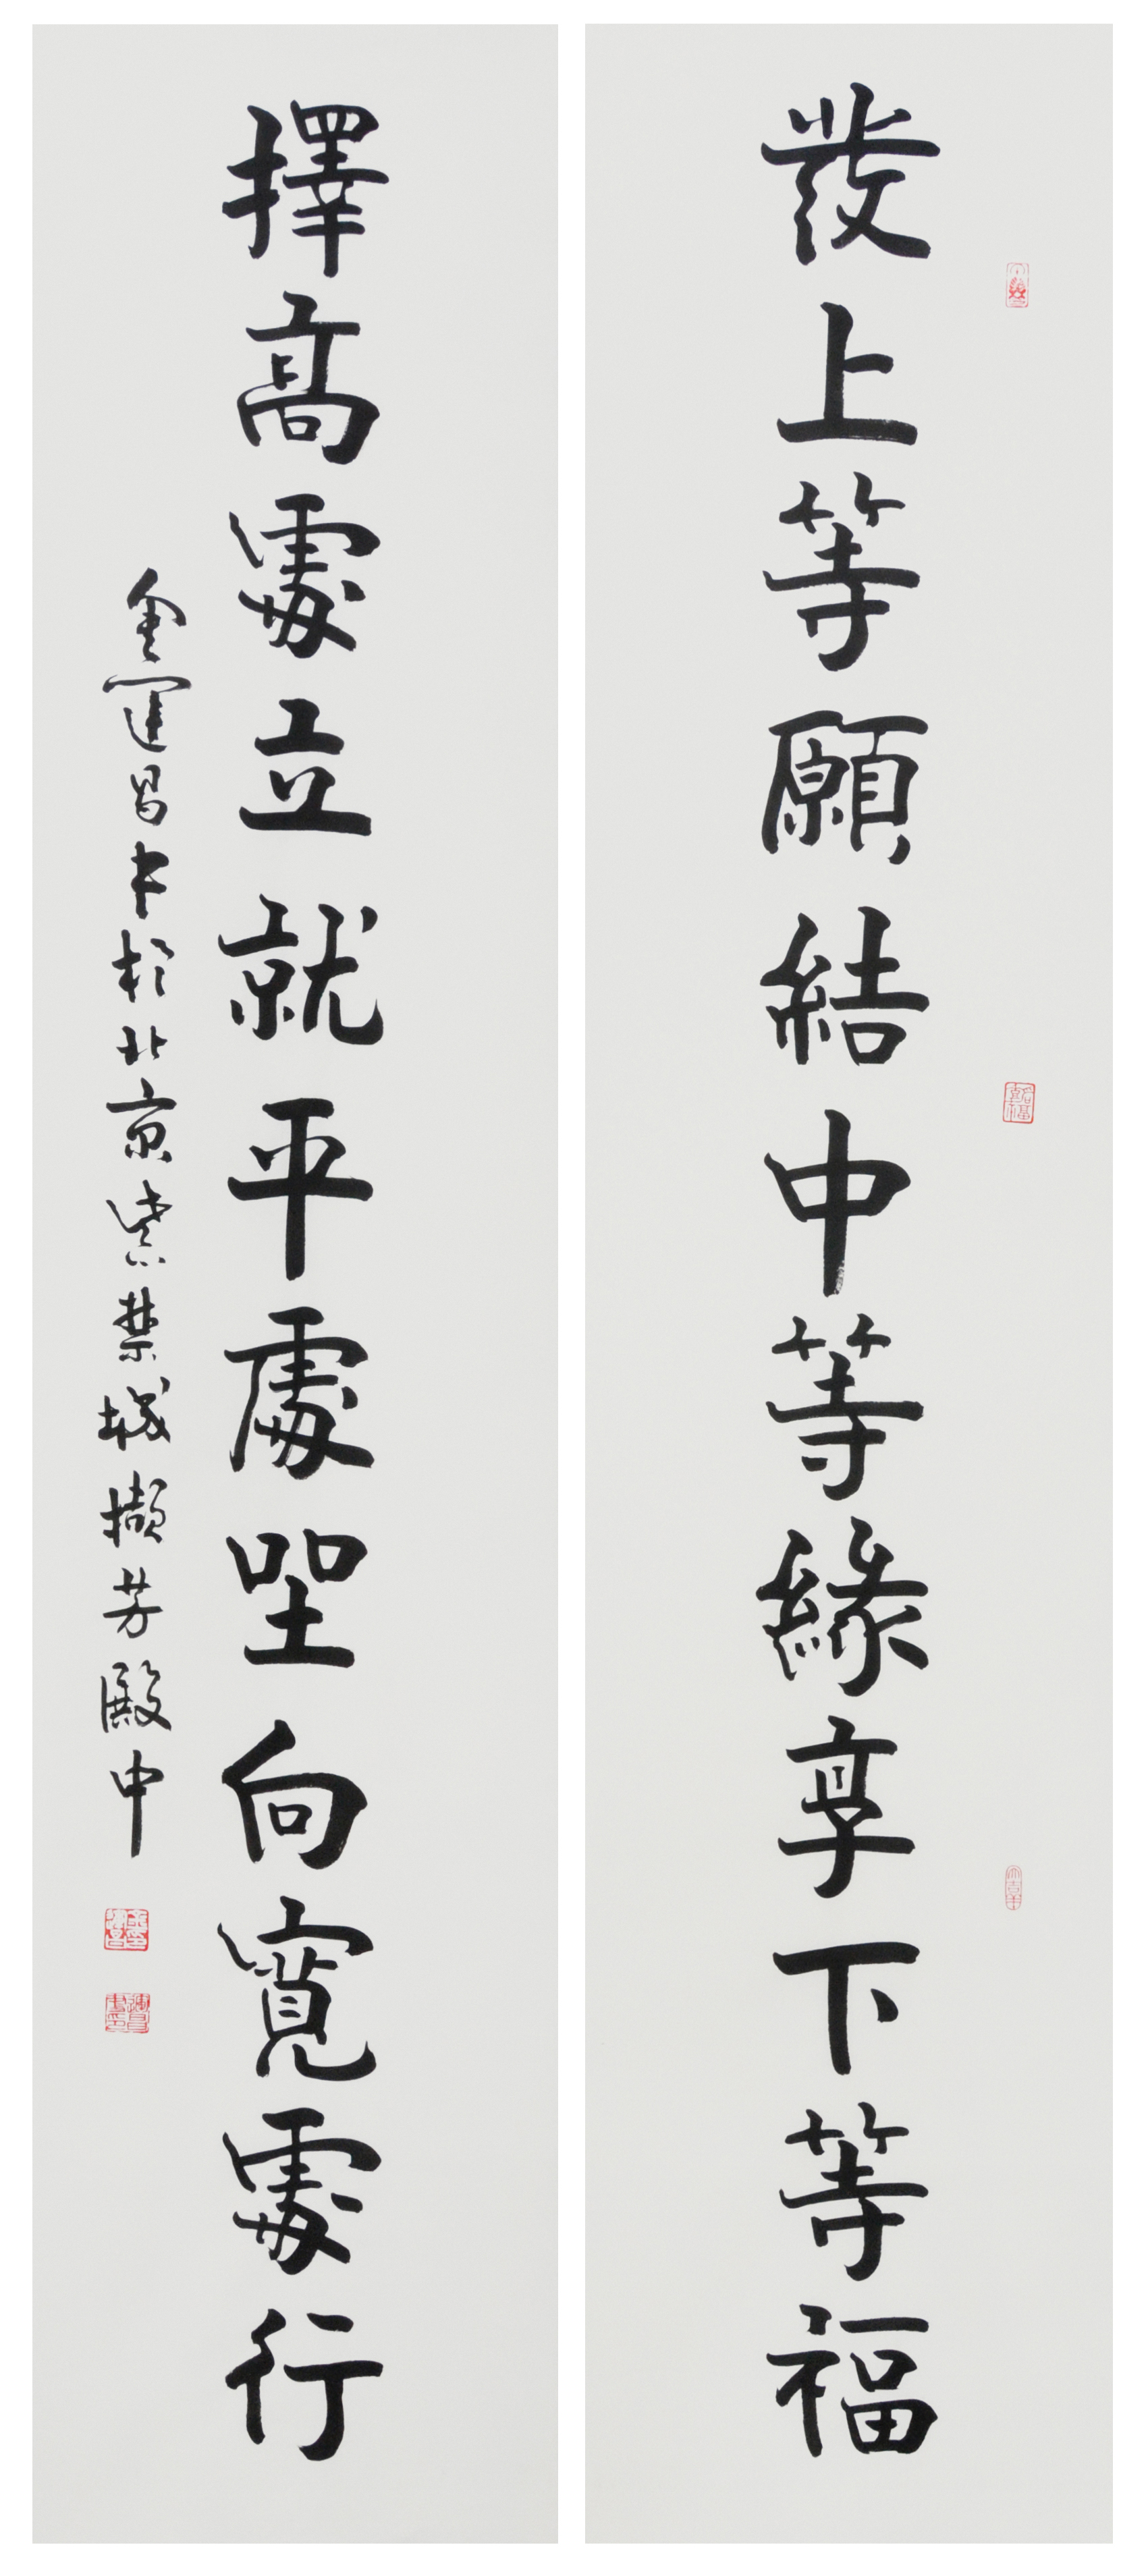 發上等願結中等緣享下等福
擇高處立就平處坐向寬處行
金運昌書於北京紫禁城擷芳殿中